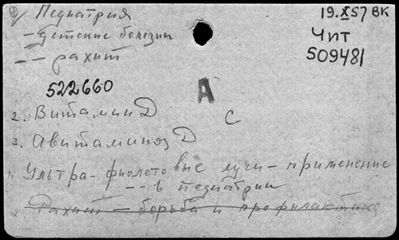 1) Педиатрия
19.X57 ВК
- детские болезни
Чит
509481
- - рахит
522660
А
2. Витамин Д
С
3. Авитаминоз Д
Ультра-фиолетовые лучи - применение
- - в педиатрии
Рахит - борьба и профилактика